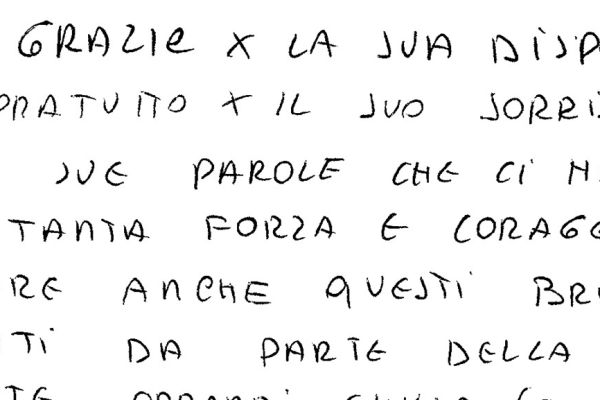 GRAZIE X LA SUA DISP
PRATUITO X IL SUO SORRI
SUE PAROLE CHE CI H
TANTA FORZA E CORAGG
RE ANCHE QUESTI BRU
TI DA PARTE DELLA